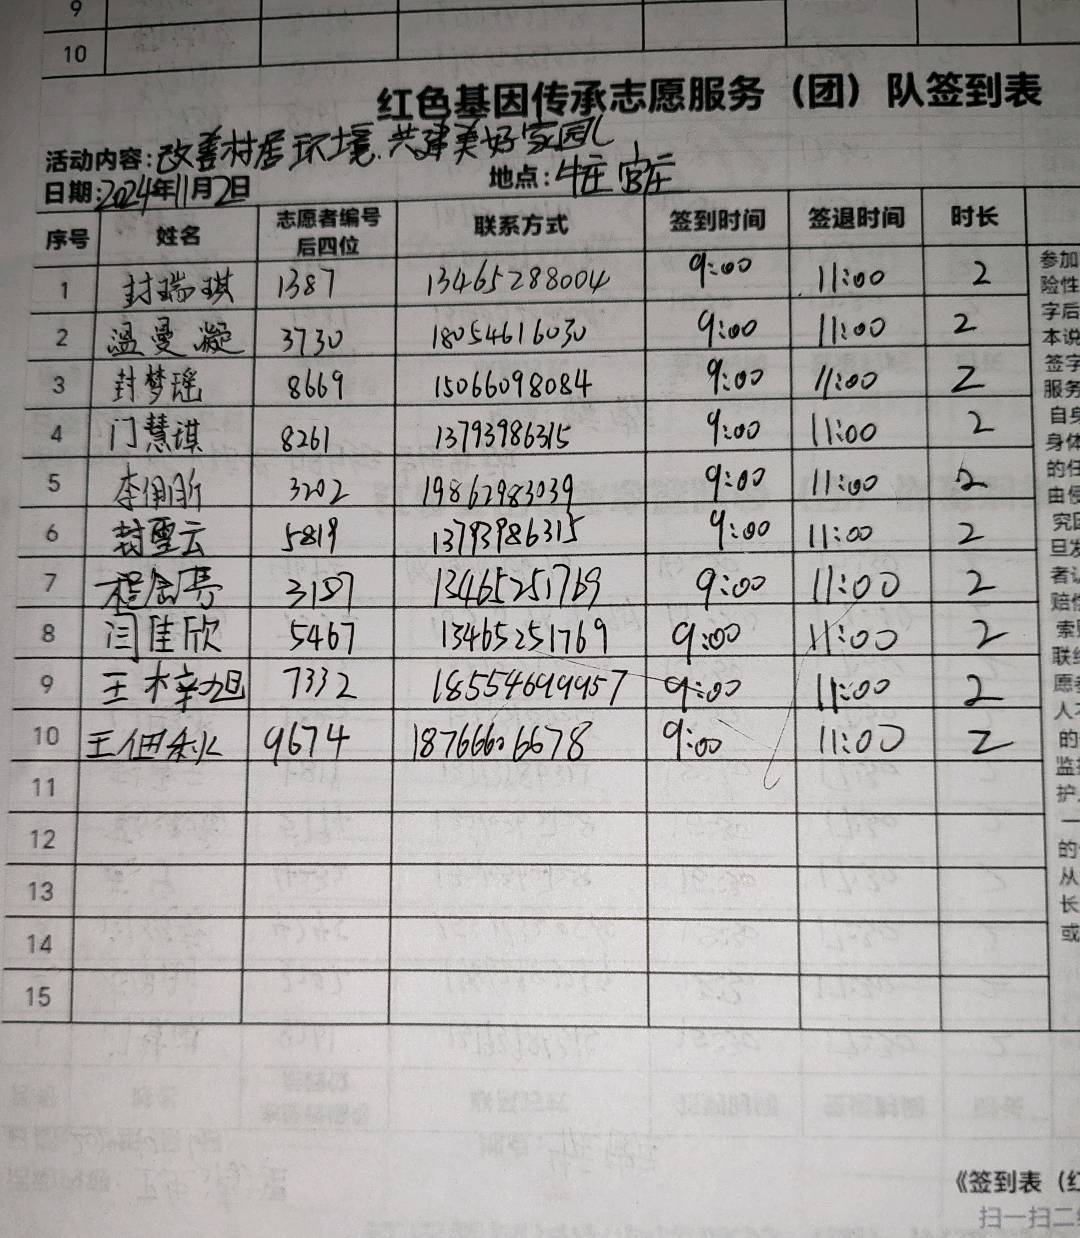 9
10
红色基因传承志愿服务（团）队签到表
活动内容:改善村居环境.共建美好家园
日期:2024年11月2日 地点:牛庄官庄
序号 姓名 志愿者编号后四位 联系方式 签到时间 签退时间 时长
1 封瑞琪 1387 13465288004 9:00 11:00 2
2 温曼凝 3730 18054616030 9:00 11:00 2
3 封梦瑶 8669 15066098084 9:00 11:00 2
4 门慧琪 8261 13793986315 9:00 11:00 2
5 李佣昕 3202 19862983039 9:00 11:00 2
6 封圣云 5819 13793986315 9:00 11:00 2
7 3187 13465251769 9:00 11:00 2
8 闫佳欣 5467 13465251769 9:00 11:00 2
9 王梓旭 7332 18554699957 9:00 11:00 2
10 王佃秋 9674 18766606678 9:00 11:00 2
11
12
13
14
15
参加
险性
字后
本说
签字
服务
自身
身体
的任
由侵
究因
旦发
者认
赔偿
索
联
愿者
人不
的
监
护
一
的
从
长
或
《签到表（红
扫一扫二